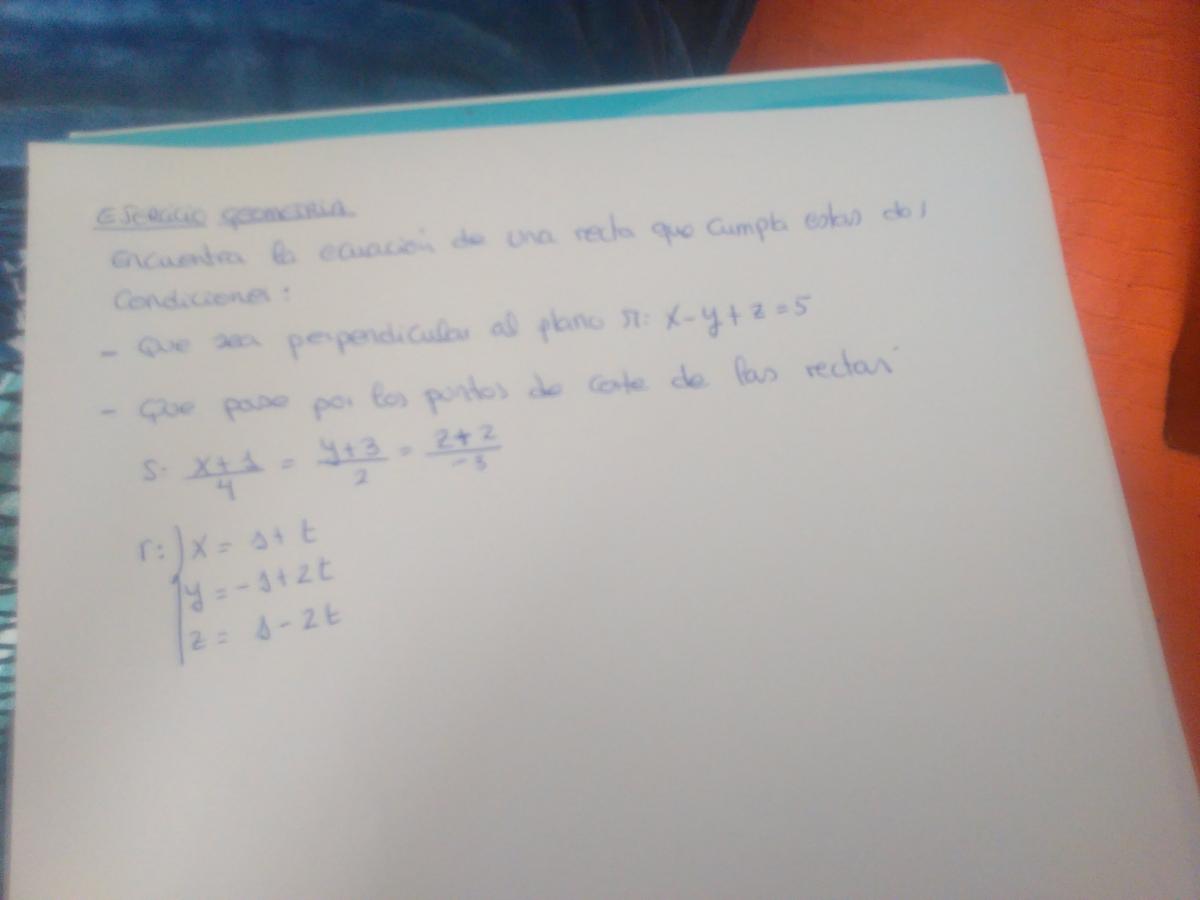 EJERCICIO GEOMETRIA
Encuentra la ecuación de una recta que cumpla estas dos
Condiciones:
- Que sea perpendicular al plano π: x-y+z=5
- Que pase por los puntos de corte de las rectas
s: (x+1)/4 = (y+3)/2 = (z+2)/-3
r: x = 1+t
y = -1+2t
z = 1-2t